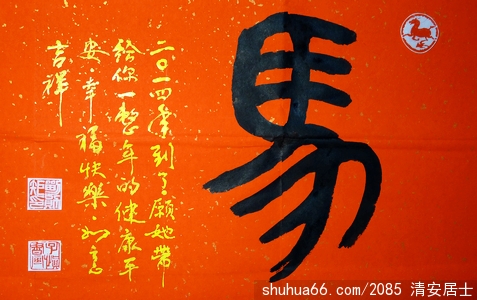 馬
二〇一四潇到了愿她带
给你一整年的健康平
安、幸福快樂、如意
吉祥
shuhua66.com/2085 清安居士